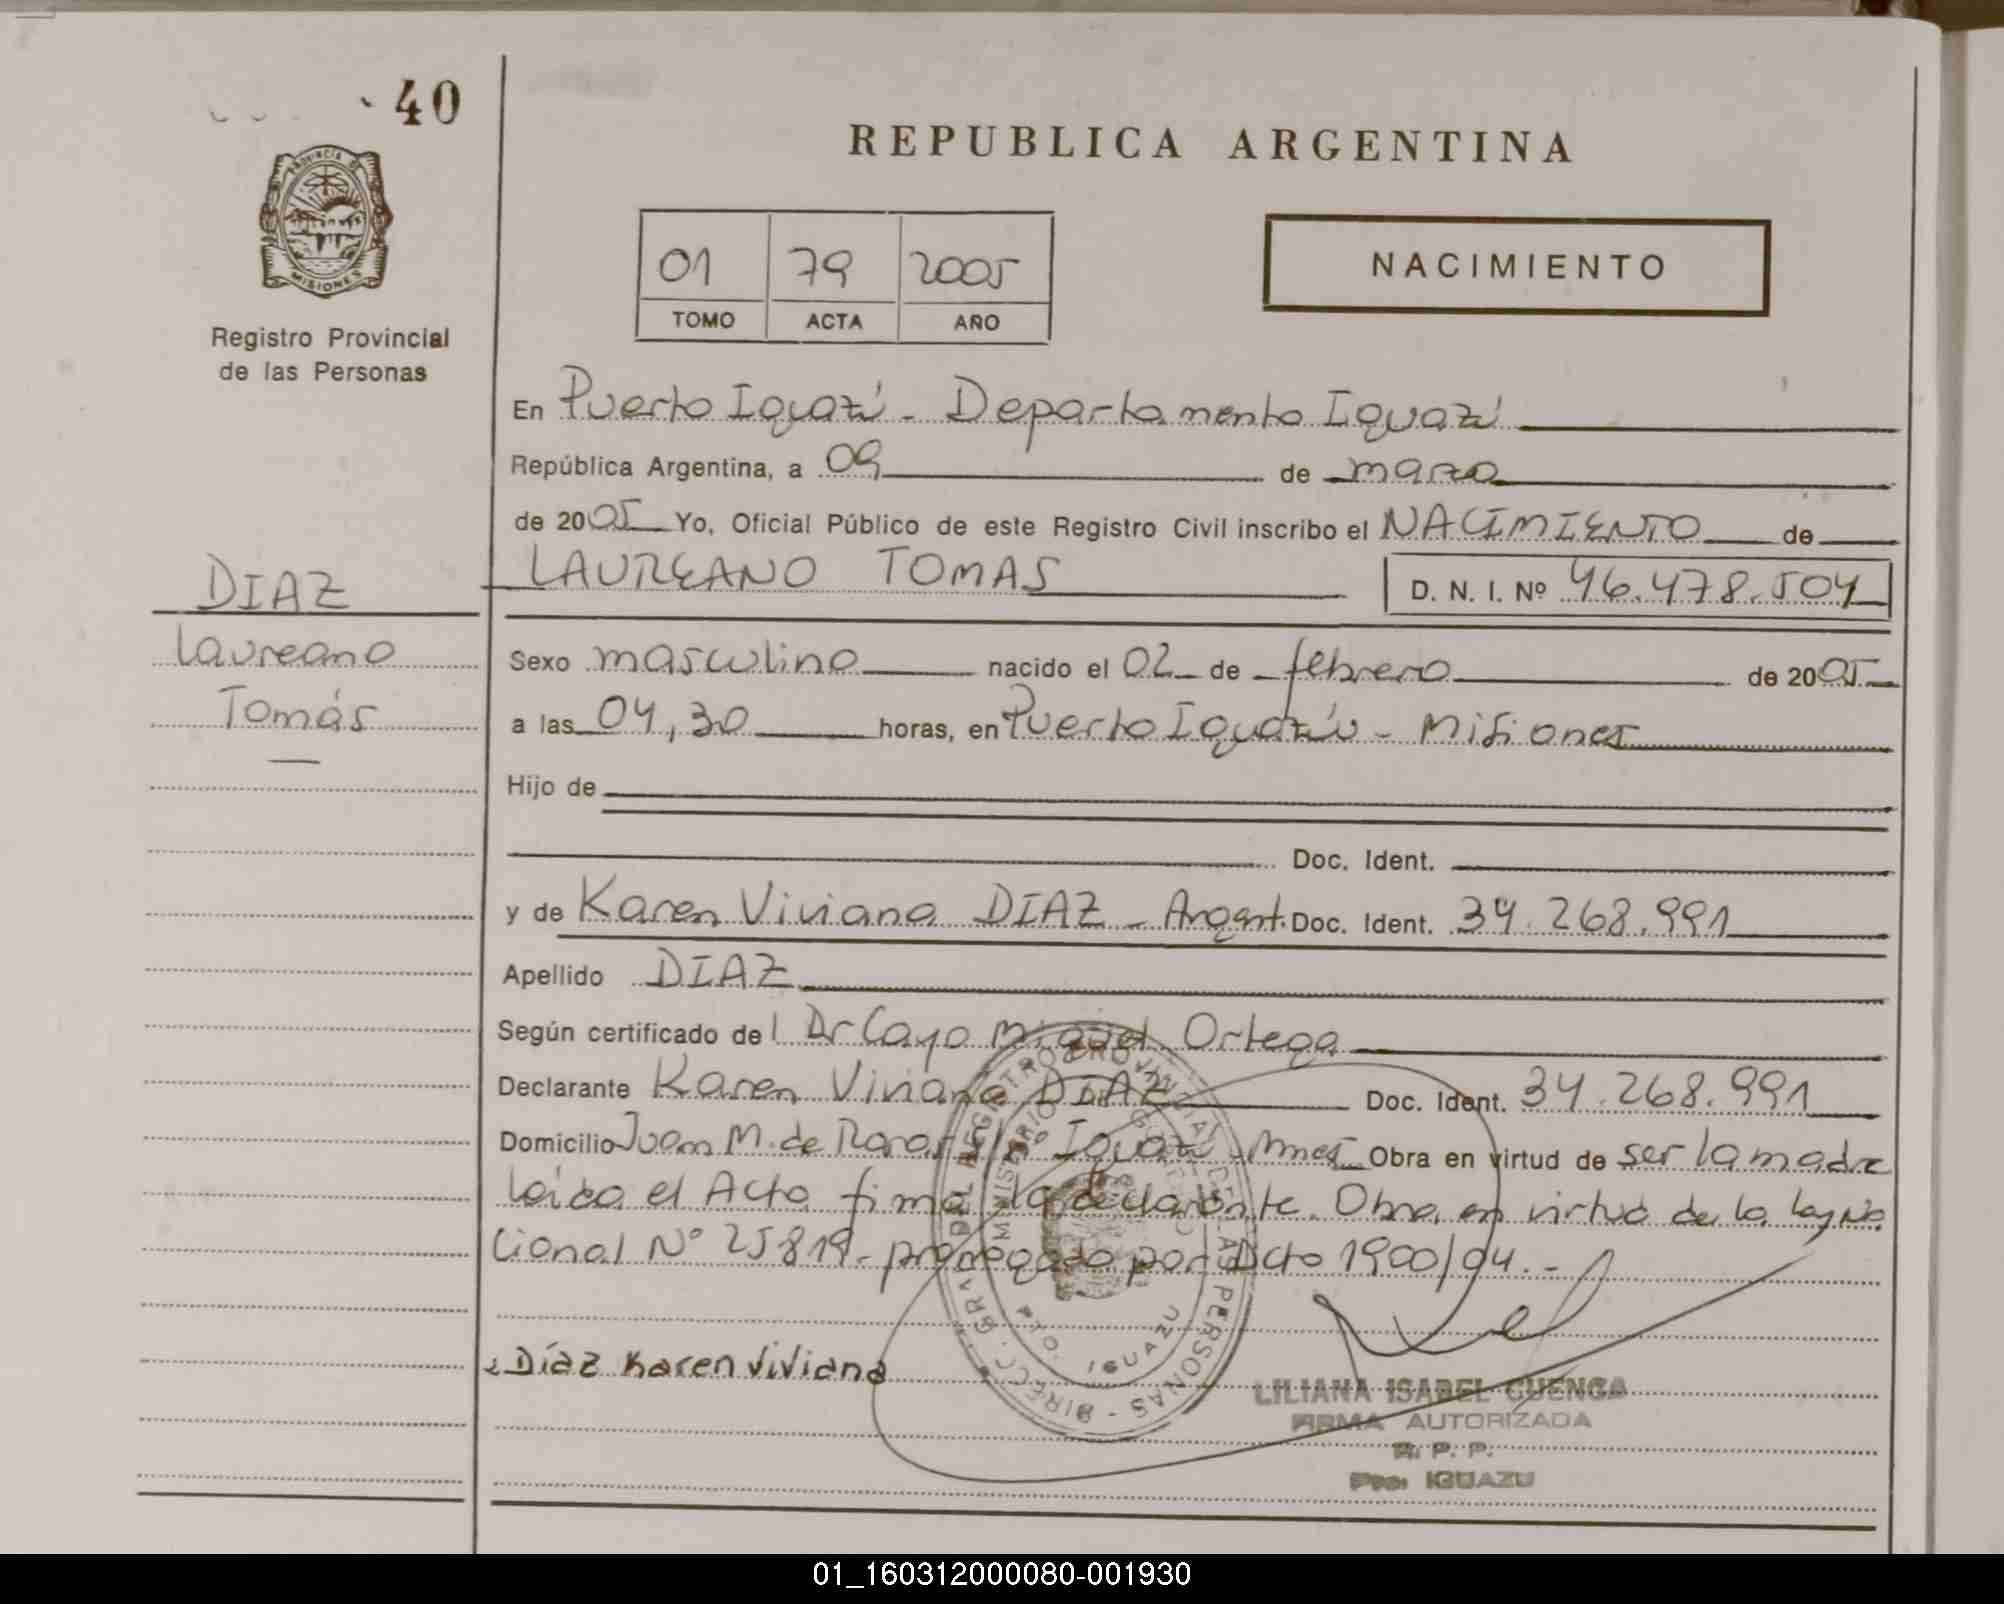 40
REPUBLICA ARGENTINA
PROVINCIA DE
MISIONES
Registro Provincial
de las Personas
01 79 2005
TOMO ACTA AÑO
NACIMIENTO
En Puerto Iguazú - Departamento Iguazú
República Argentina, a 09 de marzo
de 2005 Yo, Oficial Público de este Registro Civil inscribo el NACIMIENTO de
LAUREANO TOMAS D. N. I. Nº 46.478.504
DIAZ
Laureano
Tomás
Sexo masculino nacido el 02 de febrero de 2005
a las 04,30 horas, en Puerto Iguazú - Misiones
Hijo de
Doc. Ident.
y de Karen Viviana DIAZ - Argent. Doc. Ident. 34.268.991
Apellido DIAZ
Según certificado del Dr Cayo Miguel Ortega
Declarante Karen Viviana DIAZ Doc. Ident. 34.268.991
Domicilio Juan M. de Rosas Iguazú Mnes Obra en virtud de ser la madre
leída el Acta firma la declarante. Obra en virtud de la Ley Na
cional Nº 25819 - prorrogado por Dcto 1900/04. -
Díaz Karen Viviana
DIRECC. GRAL. DEL REGISTRO PROVINCIAL DE LAS PERSONAS
MINISTERIO DE GOBIERNO
PTO. IGUAZU
LILIANA ISABEL CUENCA
FIRMA AUTORIZADA
R. P. P.
Pto. IGUAZU
01_160312000080-001930